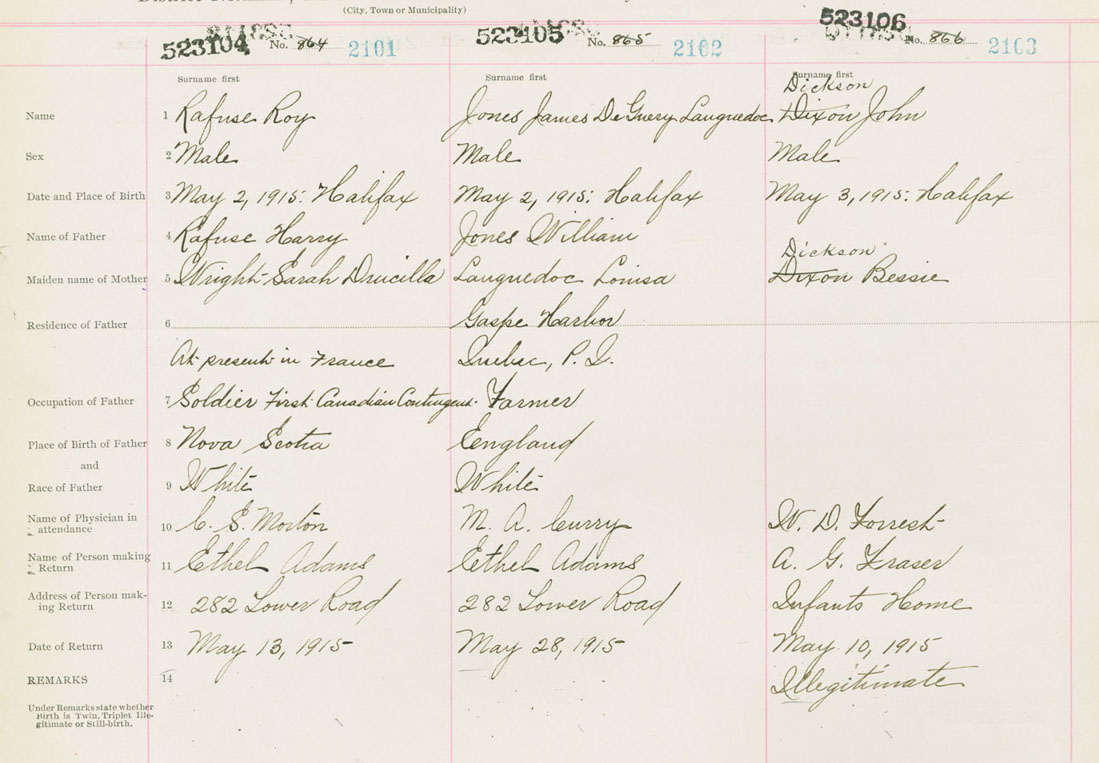 (City, Town or Municipality)
523104 No. 864 2101 523105 No. 865 2102 523106 No. 866 2103
Surname first Surname first Surname first
Dickson
Name 1 Rafuse Roy Jones James De Guery Languedoc Dixon John
Sex 2 Male Male Male
Date and Place of Birth 3 May 2, 1915: Halifax May 2, 1915: Halifax May 3, 1915: Halifax
Name of Father 4 Rafuse Harry Jones William
Dickson
Maiden name of Mother 5 Wright Sarah Drucilla Languedoc Louisa Dixon Bessie
Residence of Father 6 Gaspe Harbor
At present in France Quebec, P. Q.
Occupation of Father 7 Soldier First Canadian Contingent. Farmer
Place of Birth of Father 8 Nova Scotia England
and
Race of Father 9 White White
Name of Physician in attendance 10 C. S. Morton M. A. Curry W. D. Forrest
Name of Person making Return 11 Ethel Adams Ethel Adams A. G. Fraser
Address of Person making Return 12 282 Lower Road 282 Lower Road Infants Home
Date of Return 13 May 13, 1915 May 28, 1915 May 10, 1915
REMARKS 14 Illegitimate
Under Remarks state whether
Birth is Twin, Triplet Ille-
gitimate or Still-birth.